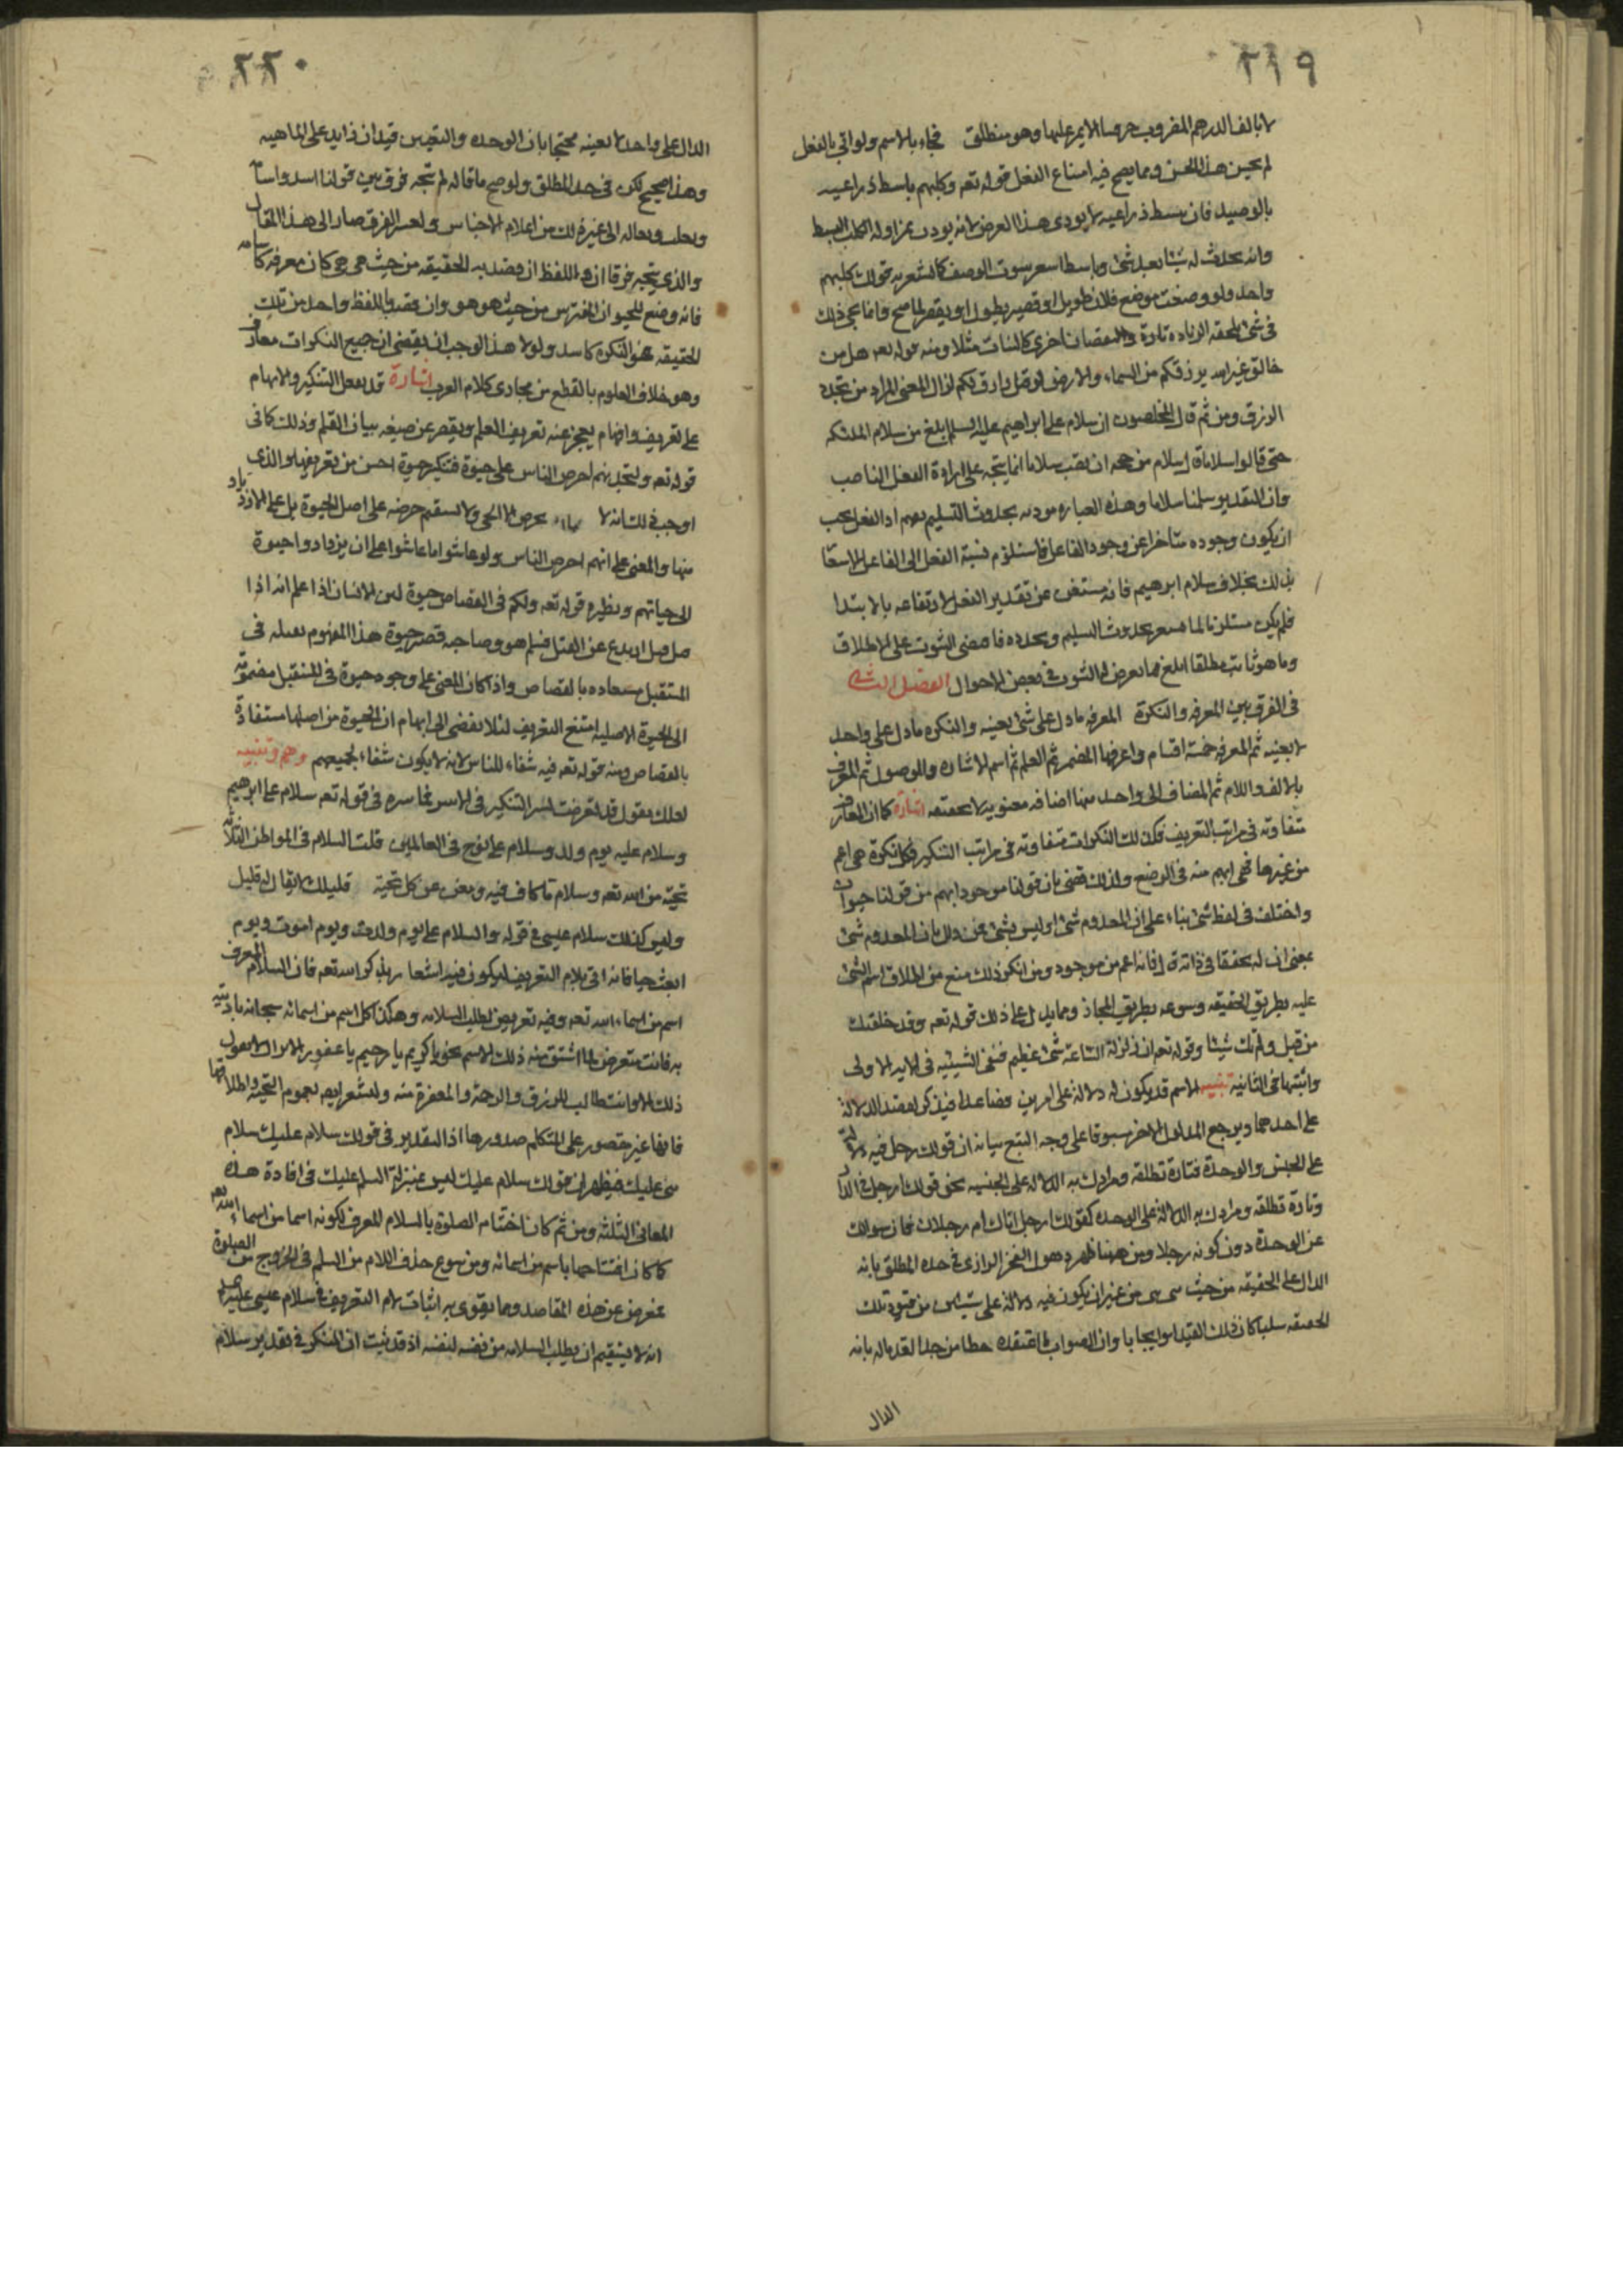 ٢١٩
لا يالف الدرهم المضروب خرقتنا الا يمر عليها وهو منطلق فجاء بالاسم ولو اتي بالفعل
لم يحسن هذا الحسن ومما يصح فيه امتناع الفعل قوله تعه وكلبهم باسط ذراعيه
بالوصيد فان يبسط ذراعيه لا يودي هذا الغرض لانه يوذن بمزاولة الكلب البسط
وانه يحدث له شيئا بعد شئ وباسط اشعر بثبوت الوصف كما اشعر به قولك كلبهم
واحد ولو وضعت موضع فلان طويل او قصير يطول او يقصر لما صح وانما يجئ ذلك
في شئ يلحقه الزياده تارة والنقصان اخرى كالنبات مثلا ومنه قوله تعه هل من
خالق غير الله يرزقكم من السماء والارض لو قيل رازق لكم لزال المعنى المراد من تجدد
الرزق ومن ثم قال المخلصون ان سلام ابراهيم عليه السلم ابلغ من سلام الملئكه
حتى قالوا سلاما قال سلام من جهه ان نصب سلاما انما يتجه على ارادة الفعل الناصب
وان التقدير سلمنا سلاما وهذه العباره موذنه بحدوث التسليم منهم اذ الفعل يجب
ان يكون وجوده متاخرا عن وجود الفاعل فاستلزم نسبة الفعل الى الفاعل الاشعار
بذلك بخلاف سلام ابرهيم فانه مستغن عن تقدير الفعل لارتفاعه بالابتدا
فلم يكن مستلزما لما يشعر بحدوث التسليم وتجدده فاقتضى الثبوت على الاطلاق
وما هو ثابت مطلقا ابلغ مما يعرض له الثبوت في بعض الاحوال الفصل الثاني
في الفرق بين المعرفه والنكرة المعرفه ما دل على شئ بعينه والنكره ما دل على واحد
لا بعينه ثم المعرفه خمسة اقسام واعرفها المضمر ثم العلم ثم اسم الاشاره والموصول ثم المعرف
بالالف واللام ثم المضاف الى واحد منها اضافه معنوية لا اشارة كما ان المعارف
متفاوته في مراتب التعريف فكذلك النكرات متفاوته في مراتب التنكير فكل نكرة هي اعم
من غيرها فهي ابهم منه في الوضع ولذلك قضى بان قولنا موجود ابهم من قولنا حيوان
واختلف في لفظ شئ بناء على ان المعدوم شئ او ليس بشئ فمن قال بان المعدوم شئ
بمعنى ان له تحققا في ذاته قال فانه اعم من موجود ومن انكر ذلك منع من اطلاق اسم الشئ
عليه بطريق الحقيقه وسوغه بطريق المجاز ومما يدل على ذلك قوله تعه وقد خلقتك
من قبل ولم تك شيئا وقوله تعه ان زلزلة الساعة شئ عظيم فنفى الشيئيه في الايه الاولى
واثبتها في الثانيه تنبيه الاسم قد يكون له دلالة على امرين فصاعدا فيذكر لقصد الدلالة
على احدهما ويرجع المدلول الاخر مسبوقا على وجه التبع بيانه ان قولك رجل فيه دلالة
على الجنس والوحدة فتارة تطلقه ومرادك به الدلاله على الجنسيه نحو قولك ارجل في الدار
وتارة تطلقه ومرادك به الدلالة على الوحده كقولك ارجل اتاك ام رجلان فان سوالك
عن الوحدة دون كونه رجلا ومن ههنا ظهر ذهول الفخر الرازي في حده المطلق بانه
الدال على الحقيقه من حيث هي هي من غير ان يكون فيه دلالة على شئ من قيود تلك
الحقيقه سلبا كان ذلك القيد او ايجابا وان الصواب ما اعتقده خطا من حد القدما له بانه
الدال
٢٢٠
الدال على واحد لا بعينه محتجا بان الوحده والتعيين قيدان زايدان على الماهيه
وهذا صحيح لكن في حد المطلق ولو صح ما قاله لم تتجه فرق بين قولنا اسد واسامه
وثعلب وثعاله الى غير ذلك من اعلام الاجناس ولعسر الفرق صار الى هذا المقال
والذي يتجه فرقا ان هذا اللفظ ان قصد به الحقيقه من حيث هي هي كان معرفه كاسامه
فانه وضع للحيوان المفترس من حيث هو هو وان قصد باللفظ واحد من تلك
الحقيقه فهو النكره كاسد ولولا هذا لوجب ان يقتضى ان جميع النكرات معارف
وهو خلاف المعلوم بالقطع من مجاري كلام العرب اشارة قد يفضل التنكير والابهام
على تعريف وافهام يعجز عنه تعريف العلم ويقصر عن صيغه بيان القلم وذلك كما في
قوله تعه ولتجدنهم احرص الناس على حيوة فتنكير حيوة احسن من تعريفها والذي
اوجب ذلك انه لا يحرص الا الحي ولا يستقيم حرصه على اصل الحيوة بل على الازدياد
منها والمعنى على انهم احرص الناس ولو عاشوا ما عاشوا على ان يزدادوا حيوة
الى حياتهم ونظيره قوله تعه ولكم في القصاص حيوة لان الانسان اذا علم انه اذا
قتل قتل ارتدع عن القتل فسلم هو وصاحبه فصير حيوة هذا المهموم بقتله في
المستقبل مستفاده بالقصاص واذا كان المعنى على وجود حيوة في المستقبل مضمومة
الى الحيوة الاصليه امتنع التعريف لئلا يفضى الى ايهام ان الحيوة من اصلها مستفادة
بالقصاص ومنه قوله تعه فيه شفاء للناس لانه لا يكون شفاء لجميعهم وهم وتنبيه
لعلك تقول قد تعرضت لسر التنكير في الاسر فما سره في قوله تعه سلام على ابرهيم
وسلام عليه يوم ولد وسلام على نوح في العالمين قلت السلام في المواطن الثلاثة
تحية من الله تعه وسلام ما كاف فيه ومغن عن كل تحية قليلك لا يقال له قليل
وليس كذلك سلام عيسى في قوله والسلام علي يوم ولدت ويوم اموت ويوم
ابعث حيا فانه اتي بلام التعريف ليكون فيه اشعار بذكر الله تعه فان السلام المعرف
اسم من اسماء الله تعه وفيه تعريض لطلب السلامه وهكذا كل اسم من اسمائه سبحانه ناديته
به فانت متعرض لما اشتق منه ذلك الاسم نحو يا كريم يا رحيم يا غفور
ذلك الا وانت طالب للرزق والرحمة والمغفرة منه وليشعر ايضا بعموم التحية واطلاقها
فانها غير مقصور على المتكلم صدورها اذ التقدير في قولك سلام عليك سلام
مني عليك فيظهر ان قولك سلام عليك ليس بمنزلة السلم عليك في افادة هذه
المعاني الثلثه ومن ثم كان اختتام الصلوة بالسلام المعرف لكونه اسما من اسماء الله تعه
كما كان افتتاحها باسم من اسمائه ومن سوغ حذف اللام من السلم في الخروج من الصلوة
بمعرض عن هذه المقاصد ومما يقوى به اثبات لام التعريف في سلام عيسى عليه السلم
انه لا يستقيم ان يطلب السلامه من نفسه لنفسه اذ قد ثبت ان المنكر في تقدير سلام